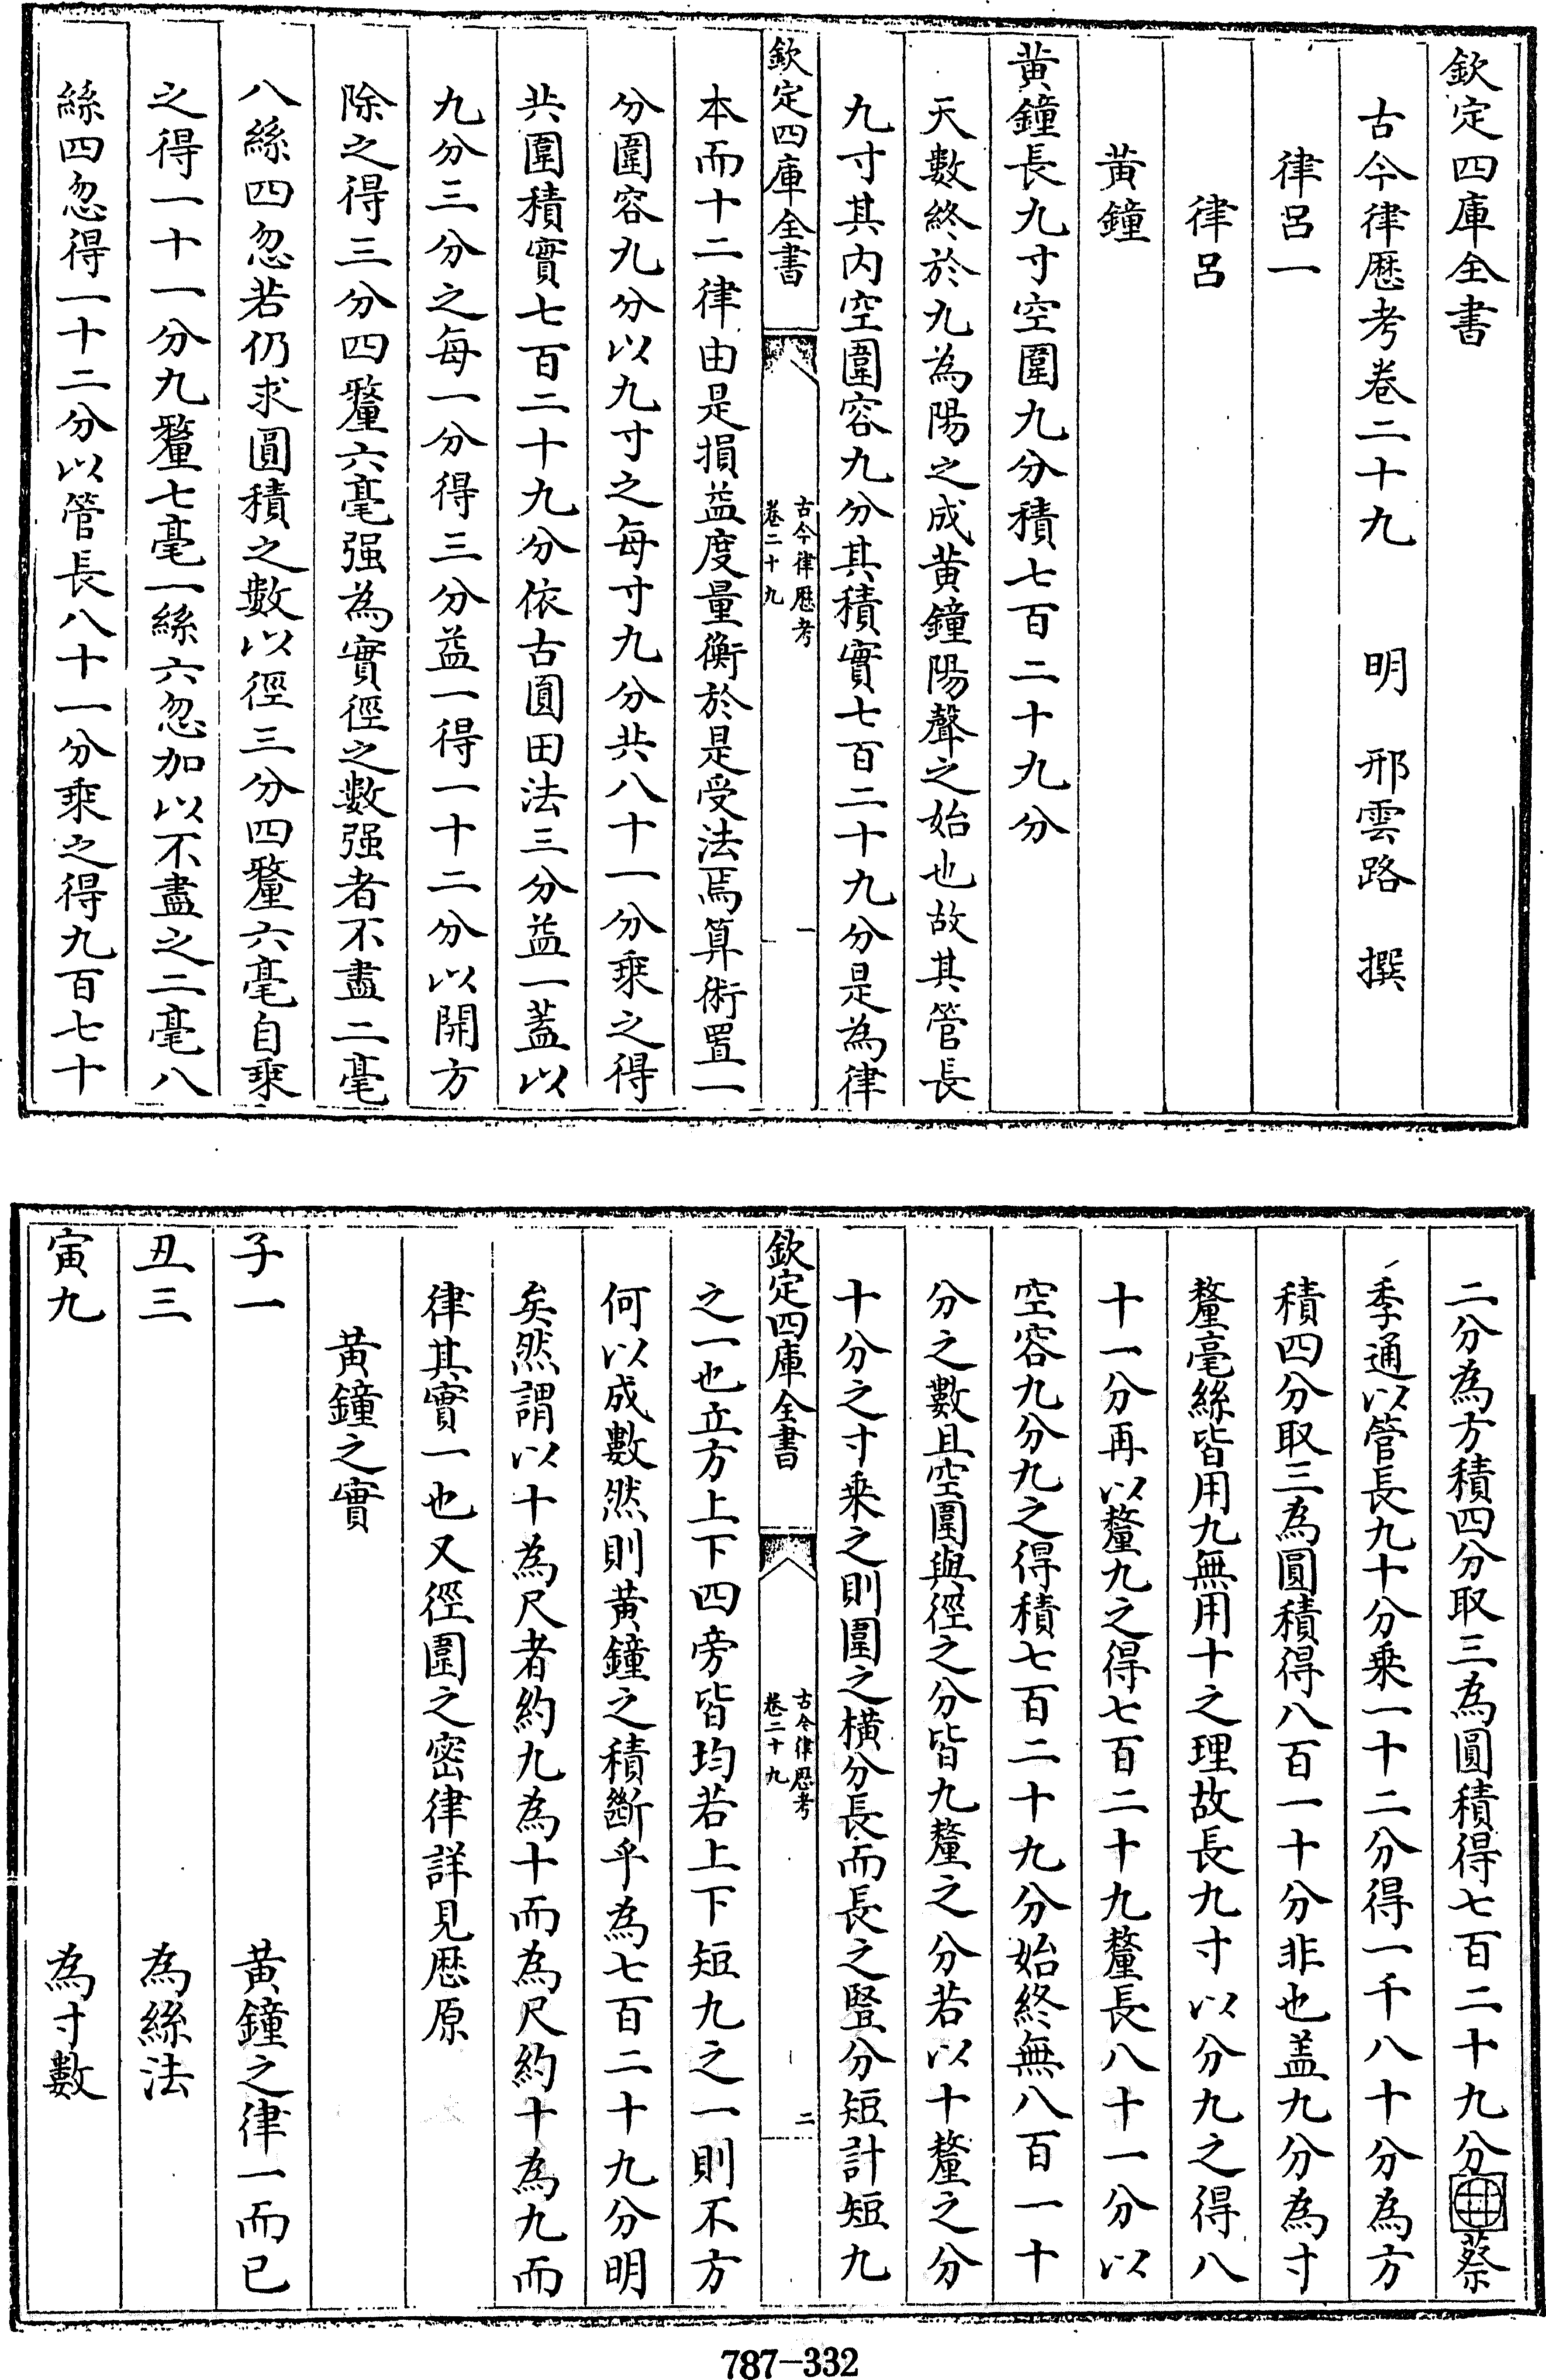 欽定四庫全書
古今律歴考卷二十九　明　邢雲路　撰
律呂一
律呂
黄鐘
黄鐘長九寸空圍九分積七百二十九分
天數終於九為陽之成黄鐘陽聲之始也故其管長
九寸其内空圍容九分其積實七百二十九分是為律
欽定四庫全書
古今律歴考
卷二十九
一
本而十二律由是損益度量衡於是受法焉算術置一
分圍容九分以九寸之每寸九分共八十一分乗之得
共圍積實七百二十九分依古圓田法三分益一蓋以
九分三分之每一分得三分益一得一十二分以開方
除之得三分四釐六毫强為實徑之數强者不盡二毫
八絲四忽若仍求圓積之數以徑三分四釐六毫自乗
之得一十一分九釐七毫一絲六忽加以不盡之二毫八
絲四忽得一十二分以管長八十一分乗之得九百七十
二分為方積四分取三為圓積得七百二十九分蔡
季通以管長九十分乗一十二分得一千八十分為方
積四分取三為圓積得八百一十分非也盖九分為寸
釐毫絲皆用九無用十之理故長九寸以分九之得八
十一分再以釐九之得七百二十九釐長八十一分以
空容九分九之得積七百二十九分始終無八百一十
分之數且空圍與徑之分皆九釐之分若以十釐之分
十分之寸乗之則圍之横分長而長之豎分短計短九
欽定四庫全書
古今律歴考
卷二十九
二
之一也立方上下四旁皆均若上下短九之一則不方
何以成數然則黄鐘之積斷乎為七百二十九分明
矣然謂以十為尺者約九為十而為尺約十為九而
律其實一也又徑圍之密律詳見歴原
黄鐘之實
子一　黄鐘之律一而已
丑三　為絲法
寅九　為寸數
787-332